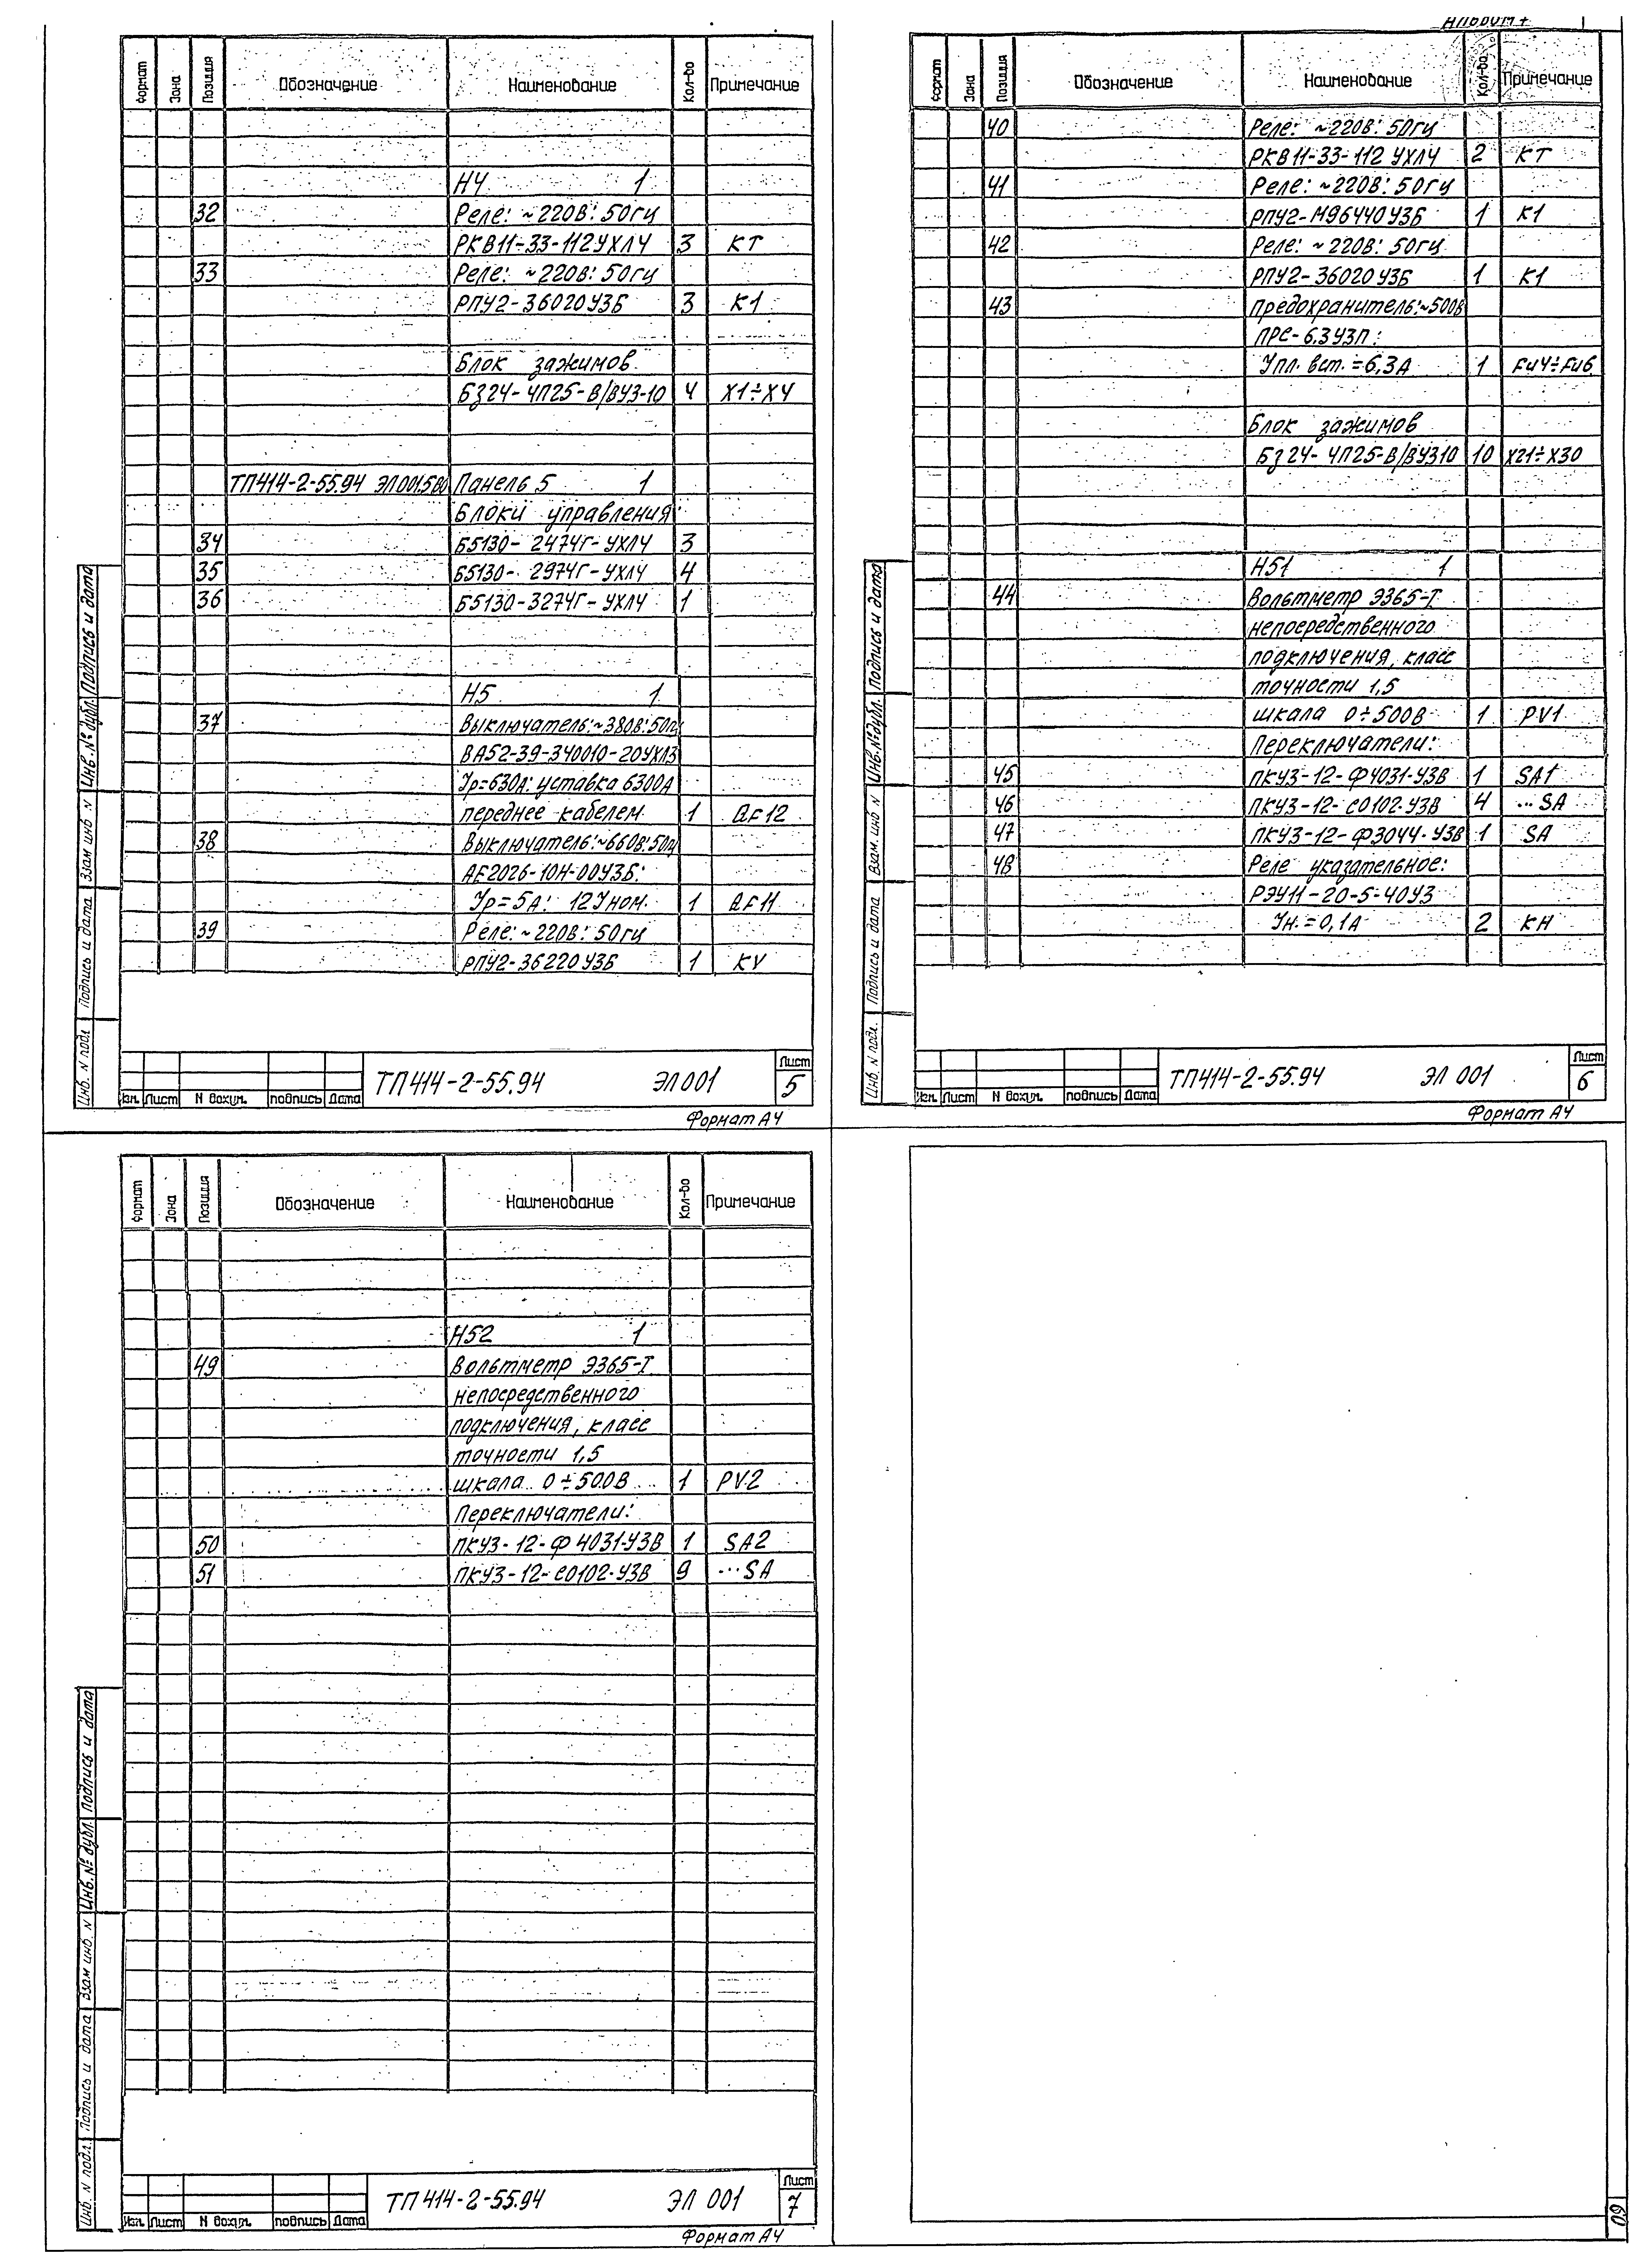 Альбом 7
Формат Зона Позиция Обозначение Наименование Кол-во Примечание
Н4 1
32 Реле: ~220В: 50гц
РКВ11-33-112УХЛ4 3 КТ
33 Реле: ~220В: 50гц
РПУ2-36020У3Б 3 К1
Блок зажимов
БЗ24-4П25-В/ВУ3-10 4 Х1÷Х4
ТП414-2-55.94 ЭЛ001.5ВО Панель 5 1
Блоки управления:
34 Б5130-2474Г-УХЛ4 3
35 Б5130-2974Г-УХЛ4 4
36 Б5130-3274Г-УХЛ4 1
Н5 1
37 Выключатель:~380В:50гц
ВА52-39-340010-20УХЛ3
Iр=630А: уставка 6300А
переднее кабелем 1 QF12
38 Выключатель:~660В:50гц
АЕ2026-10Н-00У3Б:
Iр=5А: 12Iном. 1 QF11
39 Реле:~220В: 50гц
РПУ2-36220У3Б 1 KV
Инв. N подл. Подпись и дата Взам инв N Инв. № дубл. Подпись и дата
Изм. Лист N докум. подпись Дата
ТП414-2-55.94 ЭЛ001 Лист 5
Формат А4
Формат Зона Позиция Обозначение Наименование Кол-во Примечание
40 Реле: ~220В: 50гц
РКВ11-33-112 УХЛ4 2 КТ
41 Реле: ~220В: 50гц
РПУ2-М96440У3Б 1 К1
42 Реле: ~220В: 50гц
РПУ2-36020У3Б 1 К1
43 Предохранитель:~500В
ПРС-6.3У3П:
Iпл. вст.=6,3А 1 Fu4÷Fu6
Блок зажимов
БЗ24-4П25-В/ВУ310 10 Х21÷Х30
Н51 1
44 Вольтметр Э365-1
непосредственного
подключения, класс
точности 1,5
шкала 0÷500В 1 PV1
Переключатели:
45 ПКУ3-12-Ф4031-У3В 1 SA1
46 ПКУ3-12-С0102-У3В 4 ...SA
47 ПКУ3-12-Ф3044-У3В 1 SA
48 Реле указательное:
РЭУ11-20-5-40У3
Iн.=0,1А 2 КН
Инв. N подл. Подпись и дата Взам. инв N Инв. № дубл. Подпись и дата
Изм. Лист N докум. подпись Дата
ТП414-2-55.94 ЭЛ 001 Лист 6
Формат А4
Формат Зона Позиция Обозначение Наименование Кол-во Примечание
Н52 1
49 Вольтметр Э365-1
непосредственного
подключения, класс
точности 1,5
шкала 0÷500В 1 PV2
Переключатели:
50 ПКУ3-12-Ф4031-У3В 1 SA2
51 ПКУ3-12-С0102-У3В 9 ...SA
Инв. N подл. Подпись и дата Взам инв. N Инв. № дубл. Подпись и дата
Изм. Лист N докум. подпись Дата
ТП414-2-55.94 ЭЛ 001 Лист 7
Формат А4
60